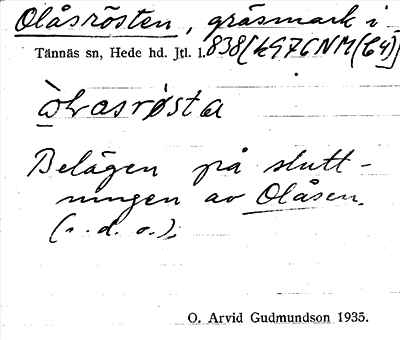 Olåsrösten, gräsmark i
Tännäs sn, Hede hd. Jtl. l. 838[k976NM(C4)]
Belägen på slutt-
ningen av Olåsen.
O. Arvid Gudmundson 1935.